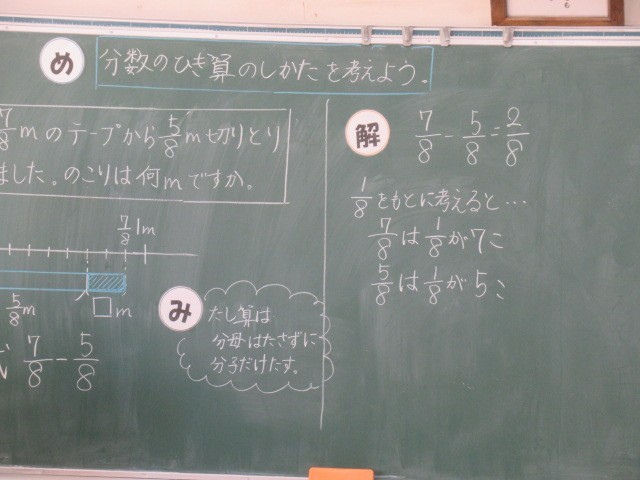 め 分数のひき算のしかたを考えよう。
7/8mのテープから5/8m切りとり
ました。のこりは何mですか。
7/8 1m
5/8m □m
式 7/8-5/8
み たし算は
分母はたさずに
分子だけたす。
解 7/8-5/8=2/8
1/8をもとに考えると…
7/8は1/8が7こ
5/8は1/8が5こ